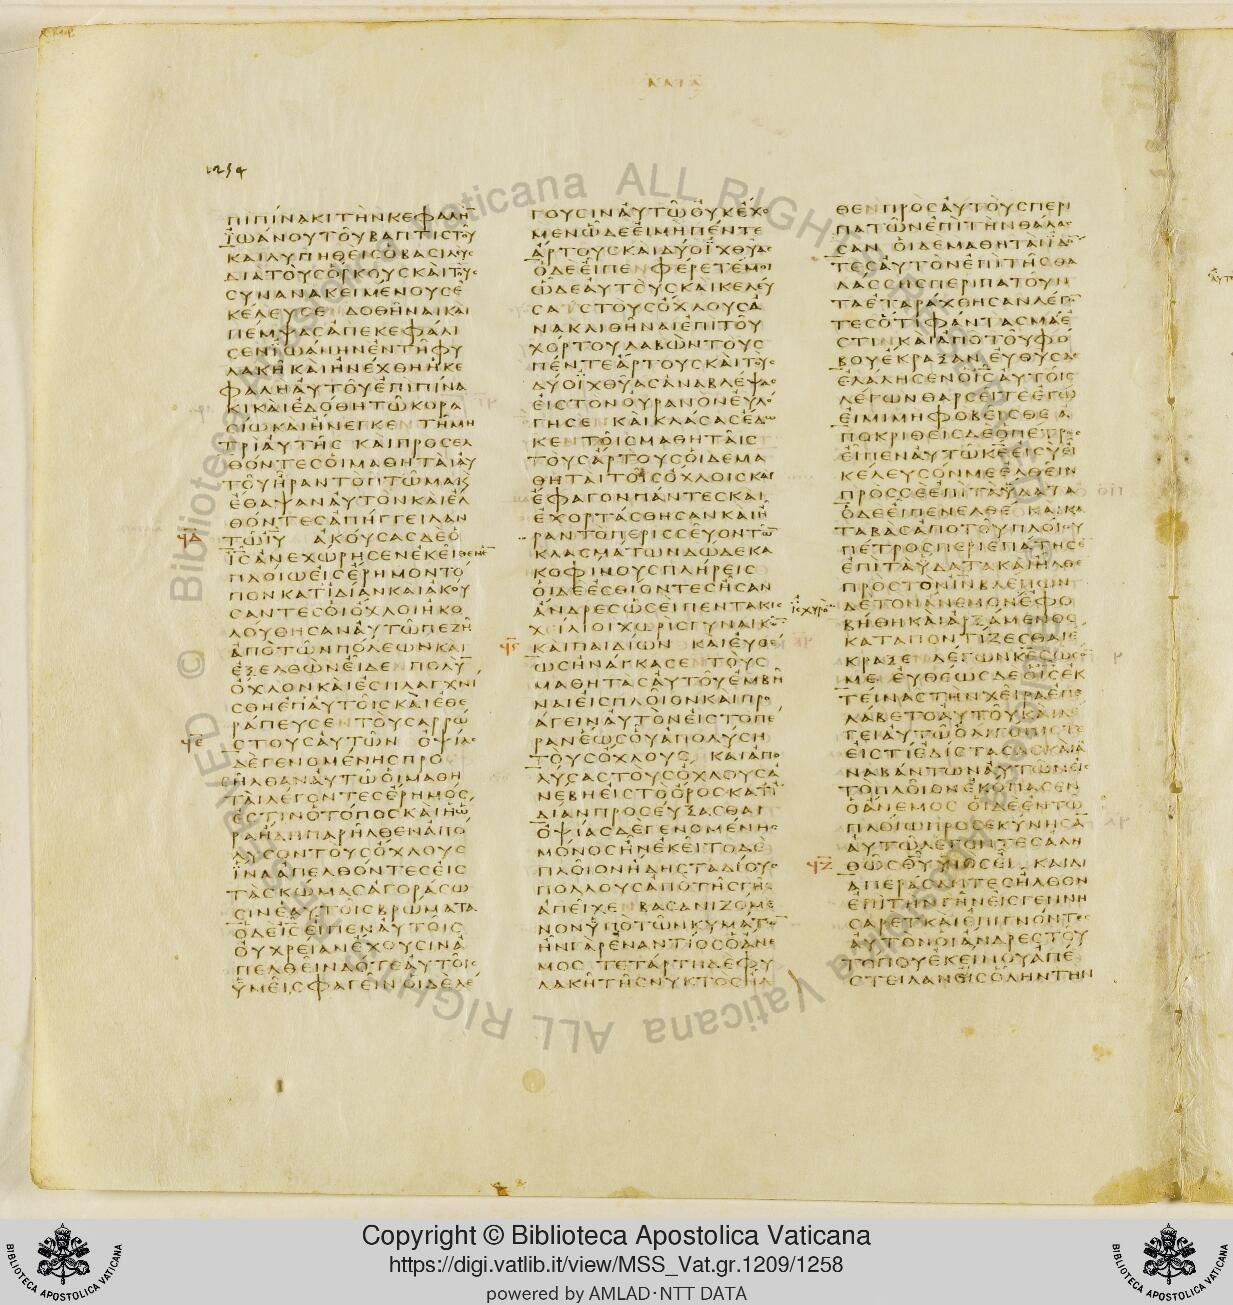 ΚΑΤΑ
1254
ΠΙΠΙΝΑΚΙΤΗΝΚΕΦΑΛΗ
ΙΩΑΝΟΥΤΟΥΒΑΠΤΙΣΤΟΥ
ΚΑΙΛΥΠΗΘΕΙΣΟΒΑΣΙΛΕΥΣ
ΔΙΑΤΟΥΣΟΡΚΟΥΣΚΑΙΤΟΥΣ
ΣΥΝΑΝΑΚΕΙΜΕΝΟΥΣΕ
ΚΕΛΕΥΣΕΝ ΔΟΘΗΝΑΙΚΑΙ
ΠΕΜΨΑΣΑΠΕΚΕΦΑΛΙ
ΣΕΝΙΩΑΝΗΝΕΝΤΗΦΥ
ΛΑΚΗΚΑΙΗΝΕΧΘΗΗΚΕ
ΦΑΛΗΑΥΤΟΥΕΠΙΠΙΝΑ
ΚΙΚΑΙΕΔΟΘΗΤΩΚΟΡΑ
ΣΙΩΚΑΙΗΝΕΓΚΕΝΤΗΜΗ
ΤΡΙΑΥΤΗΣ ΚΑΙΠΡΟΣΕΛ
ΘΟΝΤΕΣΟΙΜΑΘΗΤΑΙΑΥ
ΤΟΥΗΡΑΝΤΟΠΤΩΜΑΚΑΙ
ΕΘΑΨΑΝΑΥΤΟΝΚΑΙΕΛ
ΘΟΝΤΕΣΑΠΗΓΓΕΙΛΑΝ
ϞΔ ΤΩΙΥ ΑΚΟΥΣΑΣΔΕΟ
ΙΣΑΝΕΧΩΡΗΣΕΝΕΚΕΙΘΕΝΕΝ
ΠΛΟΙΩΕΙΣΕΡΗΜΟΝΤΟ
ΠΟΝΚΑΤΙΔΙΑΝΚΑΙΑΚΟΥ
ΣΑΝΤΕΣΟΙΟΧΛΟΙΗΚΟ
ΛΟΥΘΗΣΑΝΑΥΤΩΠΕΖΗ
ΑΠΟΤΩΝΠΟΛΕΩΝΚΑΙ
ΕΞΕΛΘΩΝΕΙΔΕΝΠΟΛΥ
ΟΧΛΟΝΚΑΙΕΣΠΛΑΓΧΝΙ
ΣΘΗΕΠΑΥΤΟΙΣΚΑΙΕΘΕ
ΡΑΠΕΥΣΕΝΤΟΥΣΑΡΡΩ
ϞΕ ΣΤΟΥΣΑΥΤΩΝ ΟΨΙΑΣ
ΔΕΓΕΝΟΜΕΝΗΣΠΡΟ
ΣΗΛΘΑΝΑΥΤΩΟΙΜΑΘΗ
ΤΑΙΛΕΓΟΝΤΕΣΕΡΗΜΟΣ
ΕΣΤΙΝΟΤΟΠΟΣΚΑΙΗΩ
ΡΑΗΔΗΠΑΡΗΛΘΕΝΑΠΟ
ΛΥΣΟΝΤΟΥΣΟΧΛΟΥΣ
ΙΝΑΑΠΕΛΘΟΝΤΕΣΕΙΣ
ΤΑΣΚΩΜΑΣΑΓΟΡΑΣΩ
ΣΙΝΕΑΥΤΟΙΣΒΡΩΜΑΤΑ
ΟΔΕΙΣΕΙΠΕΝΑΥΤΟΙΣ
ΟΥΧΡΕΙΑΝΕΧΟΥΣΙΝΑ
ΠΕΛΘΕΙΝΔΟΤΕΑΥΤΟΙΣ
ΥΜΕΙΣΦΑΓΕΙΝΟΙΔΕΛΕ
ΓΟΥΣΙΝΑΥΤΩΟΥΚΕΧΟ
ΜΕΝΩΔΕΕΙΜΗΠΕΝΤΕ
ΑΡΤΟΥΣΚΑΙΔΥΟΙΧΘΥΑΣ
ΟΔΕΕΙΠΕΝΦΕΡΕΤΕΜΟΙ
ΩΔΕΑΥΤΟΥΣΚΑΙΚΕΛΕΥ
ΣΑΤΕΤΟΥΣΟΧΛΟΥΣΑ
ΝΑΚΛΙΘΗΝΑΙΕΠΙΤΟΥ
ΧΟΡΤΟΥΛΑΒΩΝΤΟΥΣ
ΠΕΝΤΕΑΡΤΟΥΣΚΑΙΤΟΥΣ
ΔΥΟΙΧΘΥΑΣΑΝΑΒΛΕΨΑΣ
ΕΙΣΤΟΝΟΥΡΑΝΟΝΕΥΛΟ
ΓΗΣΕΝΚΑΙΚΛΑΣΑΣΕΔΩ
ΚΕΝΤΟΙΣΜΑΘΗΤΑΙΣ
ΤΟΥΣΑΡΤΟΥΣΟΙΔΕΜΑ
ΘΗΤΑΙΤΟΙΣΟΧΛΟΙΣΚΑΙ
ΕΦΑΓΟΝΠΑΝΤΕΣΚΑΙ
ΕΧΟΡΤΑΣΘΗΣΑΝΚΑΙΗ
ΡΑΝΤΟΠΕΡΙΣΣΕΥΟΝΤΩ
ΚΛΑΣΜΑΤΩΝΔΩΔΕΚΑ
ΚΟΦΙΝΟΥΣΠΛΗΡΕΙΣ
ΟΙΔΕΕΣΘΙΟΝΤΕΣΗΣΑΝ
ΑΝΔΡΕΣΩΣΕΙΠΕΝΤΑΚΙΣ
ΧΕΙΛΙΟΙΧΩΡΙΣΓΥΝΑΙΚΩ
ϞϚ ΚΑΙΠΑΙΔΙΩΝ ΚΑΙΕΥΘΕ
ΩΣΗΝΑΓΚΑΣΕΝΤΟΥΣ
ΜΑΘΗΤΑΣΑΥΤΟΥΕΜΒΗ
ΝΑΙΕΙΣΠΛΟΙΟΝΚΑΙΠΡΟ
ΑΓΕΙΝΑΥΤΟΝΕΙΣΤΟΠΕ
ΡΑΝΕΩΣΟΥΑΠΟΛΥΣΗ
ΤΟΥΣΟΧΛΟΥΣ ΚΑΙΑΠΟ
ΛΥΣΑΣΤΟΥΣΟΧΛΟΥΣΑ
ΝΕΒΗΕΙΣΤΟΟΡΟΣΚΑΤΙ
ΔΙΑΝΠΡΟΣΕΥΞΑΣΘΑΙ
ΟΨΙΑΣΔΕΓΕΝΟΜΕΝΗΣ
ΜΟΝΟΣΗΝΕΚΕΙΤΟΔΕ
ΠΛΟΙΟΝΗΔΗΣΤΑΔΙΟΥΣ
ΠΟΛΛΟΥΣΑΠΟΤΗΣΓΗΣ
ΑΠΕΙΧΕΝΒΑΣΑΝΙΖΟΜΕ
ΝΟΝΥΠΟΤΩΝΚΥΜΑΤΩ
ΗΝΓΑΡΕΝΑΝΤΙΟΣΟΑΝΕ
ΜΟΣ ΤΕΤΑΡΤΗΔΕΦΥ
ΛΑΚΗΤΗΣΝΥΚΤΟΣΗΛ
ΙΣΧΥΡΟ
ΘΕΝΠΡΟΣΑΥΤΟΥΣΠΕΡΙ
ΠΑΤΩΝΕΠΙΤΗΝΘΑΛΑΣ
ΣΑΝ ΟΙΔΕΜΑΘΗΤΑΙΙΔΟ
ΤΕΣΑΥΤΟΝΕΠΙΤΗΣΘΑ
ΛΑΣΣΗΣΠΕΡΙΠΑΤΟΥΝ
ΤΑΕΤΑΡΑΧΘΗΣΑΝΛΕΓΟ
ΤΕΣΟΤΙΦΑΝΤΑΣΜΑΕ
ΣΤΙΝΚΑΙΑΠΟΤΟΥΦΟ
ΒΟΥΕΚΡΑΞΑΝΕΥΘΥΣΔΕ
ΕΛΑΛΗΣΕΝΟΙΣΑΥΤΟΙΣ
ΛΕΓΩΝΘΑΡΣΕΙΤΕΕΓΩ
ΕΙΜΙΜΗΦΟΒΕΙΣΘΕΑ
ΠΟΚΡΙΘΕΙΣΔΕΟΠΕΤΡΟΣ
ΕΙΠΕΝΑΥΤΩΚΕΕΙΣΥΕΙ
ΚΕΛΕΥΣΟΝΜΕΕΛΘΕΙΝ
ΠΡΟΣΣΕΕΠΙΤΑΥΔΑΤΑ
ΟΔΕΕΙΠΕΝΕΛΘΕΚΑΙΚΑ
ΤΑΒΑΣΑΠΟΤΟΥΠΛΟΙΟΥ
ΠΕΤΡΟΣΠΕΡΙΕΠΑΤΗΣΕ
ΕΠΙΤΑΥΔΑΤΑΚΑΙΗΛΘΕ
ΠΡΟΣΤΟΝΙΝΒΛΕΠΩΝ
ΔΕΤΟΝΑΝΕΜΟΝΕΦΟ
ΒΗΘΗΚΑΙΑΡΞΑΜΕΝΟΣ
ΚΑΤΑΠΟΝΤΙΖΕΣΘΑΙΕ
ΚΡΑΞΕΛΕΓΩΝΚΕΣΩΣΟ
ΜΕ ΕΥΘΕΩΣΔΕΟΙΣΕΚ
ΤΕΙΝΑΣΤΗΝΧΕΙΡΑΕΠΕ
ΛΑΒΕΤΟΑΥΤΟΥΚΑΙΛΕ
ΓΕΙΑΥΤΩΟΛΙΓΟΠΙΣΤΕ
ΕΙΣΤΙΕΔΙΣΤΑΣΑΣΚΑΙΑ
ΝΑΒΑΝΤΩΝΑΥΤΩΝΕΙΣ
ΤΟΠΛΟΙΟΝΕΚΟΠΑΣΕΝ
ΟΑΝΕΜΟΣ ΟΙΔΕΕΝΤΩ
ΠΛΟΙΩΠΡΟΣΕΚΥΝΗΣΑ
ΑΥΤΩΛΕΓΟΝΤΕΣΑΛΗ
ϞΖ ΘΩΣΘΥΥΙΟΣΕΙ ΚΑΙΔΙ
ΑΠΕΡΑΣΑΝΤΕΣΗΛΘΟΝ
ΕΠΙΤΗΝΓΗΝΕΙΣΓΕΝΝΗ
ΣΑΡΕΤΚΑΙΕΠΙΓΝΟΝΤΕΣ
ΑΥΤΟΝΟΙΑΝΔΡΕΣΤΟΥ
ΤΟΠΟΥΕΚΕΙΝΟΥΑΠΕ
ΣΤΕΙΛΑΝΕΙΣΟΛΗΝΤΗΝ
Copyright © Biblioteca Apostolica Vaticana
https://digi.vatlib.it/view/MSS_Vat.gr.1209/1258
powered by AMLAD·NTT DATA